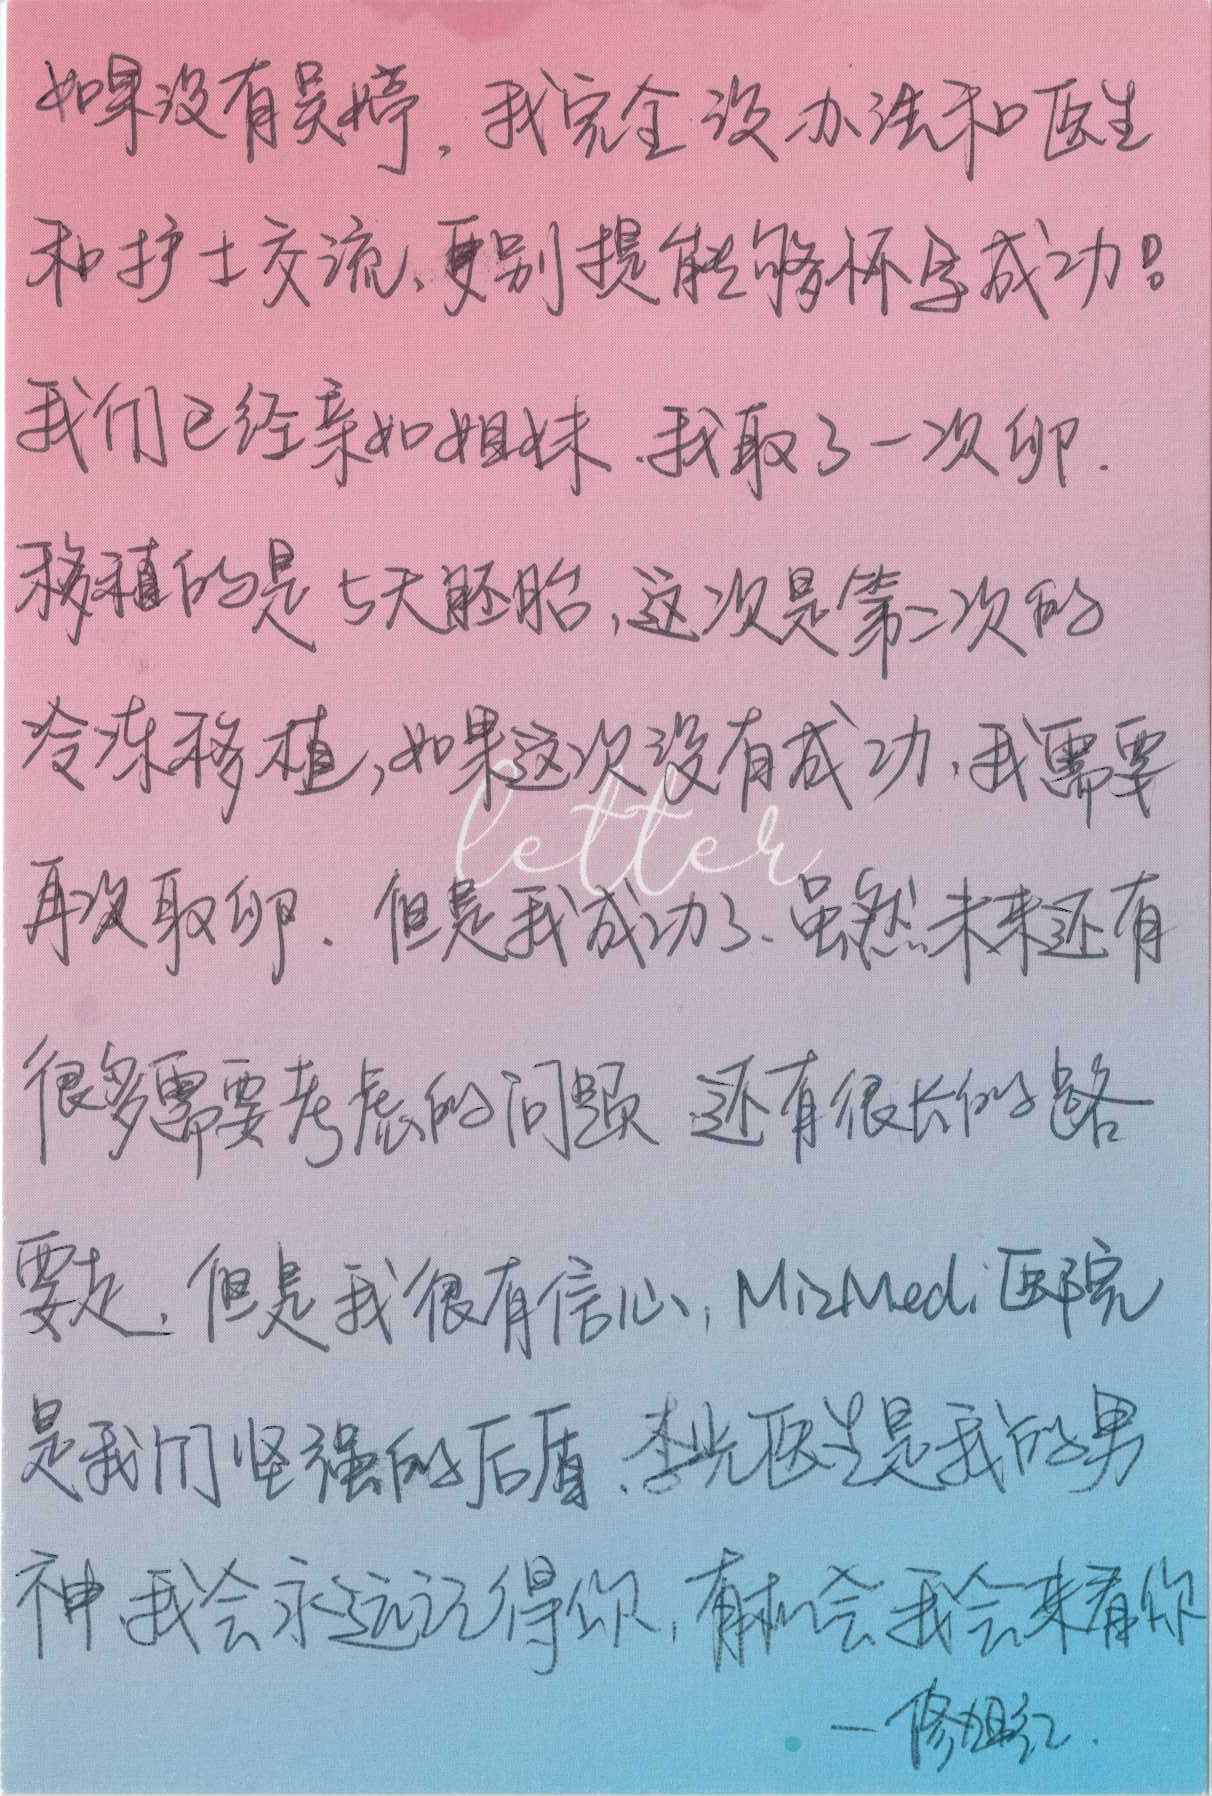 如果没有吴婷，我完全没办法和医生
和护士交流、更别提能够怀孕成功！
我们已经亲如姐妹、我取了一次卵.
移植的是5天胚胎，这次是第二次的
冷冻移植，如果这次没有成功，我需要
letter
再次取卵、但是我成功了、虽然未来还有
很多需要考虑的问题 还有很长的路
要走，但是我很有信心，MizMedi医院
是我们坚强的后盾、李光医生是我的男
神、我会永远记得你，有机会我会来看你